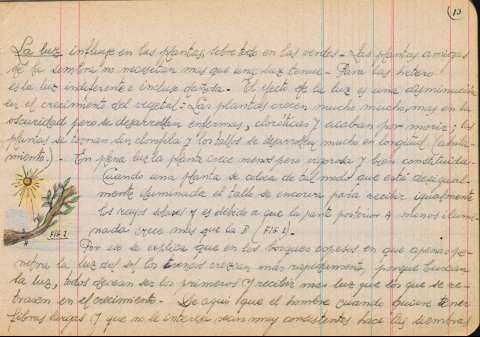 13
La luz influye en las plantas, sobre todo en las verdes - Las plantas amigas
de la sombra no necesitan mas que una luz tenue - Para las hetero
es la luz indiferente e incluso dañosa - El efecto de la luz es una disminución
en el crecimiento del vegetal - Las plantas crecen mucho mucho mas en la
oscuridad pero se desarrollan enfermas, cloróticas y acaban por morir; las
plantas se tornan sin clorofila y los tallos se desarrollan mucho en longitud
miento.) - En plena luz la planta crece menos pero vigorosa y bien constituida -
Cuando una planta se coloca de tal modo que está desigual-
mente iluminada el tallo se encorva para recibir igualmente
los rayos solares y es debido a que la parte posterior A menos ilumi-
nada crece mas que la B (FIG 1).
FIG. 1
A
Por eso se explica que en los bosques espesos en que apenas pe-
netra la luz del sol los troncos crezcan más rapidamente, porque buscan
la luz, todos desean ser los primeros y recibir mas luz que los que se re-
trasen en el crecimiento - De aquí que el hombre cuando quiere tener
fibras largas y que no le interesa sean muy consistentes hace las siembras